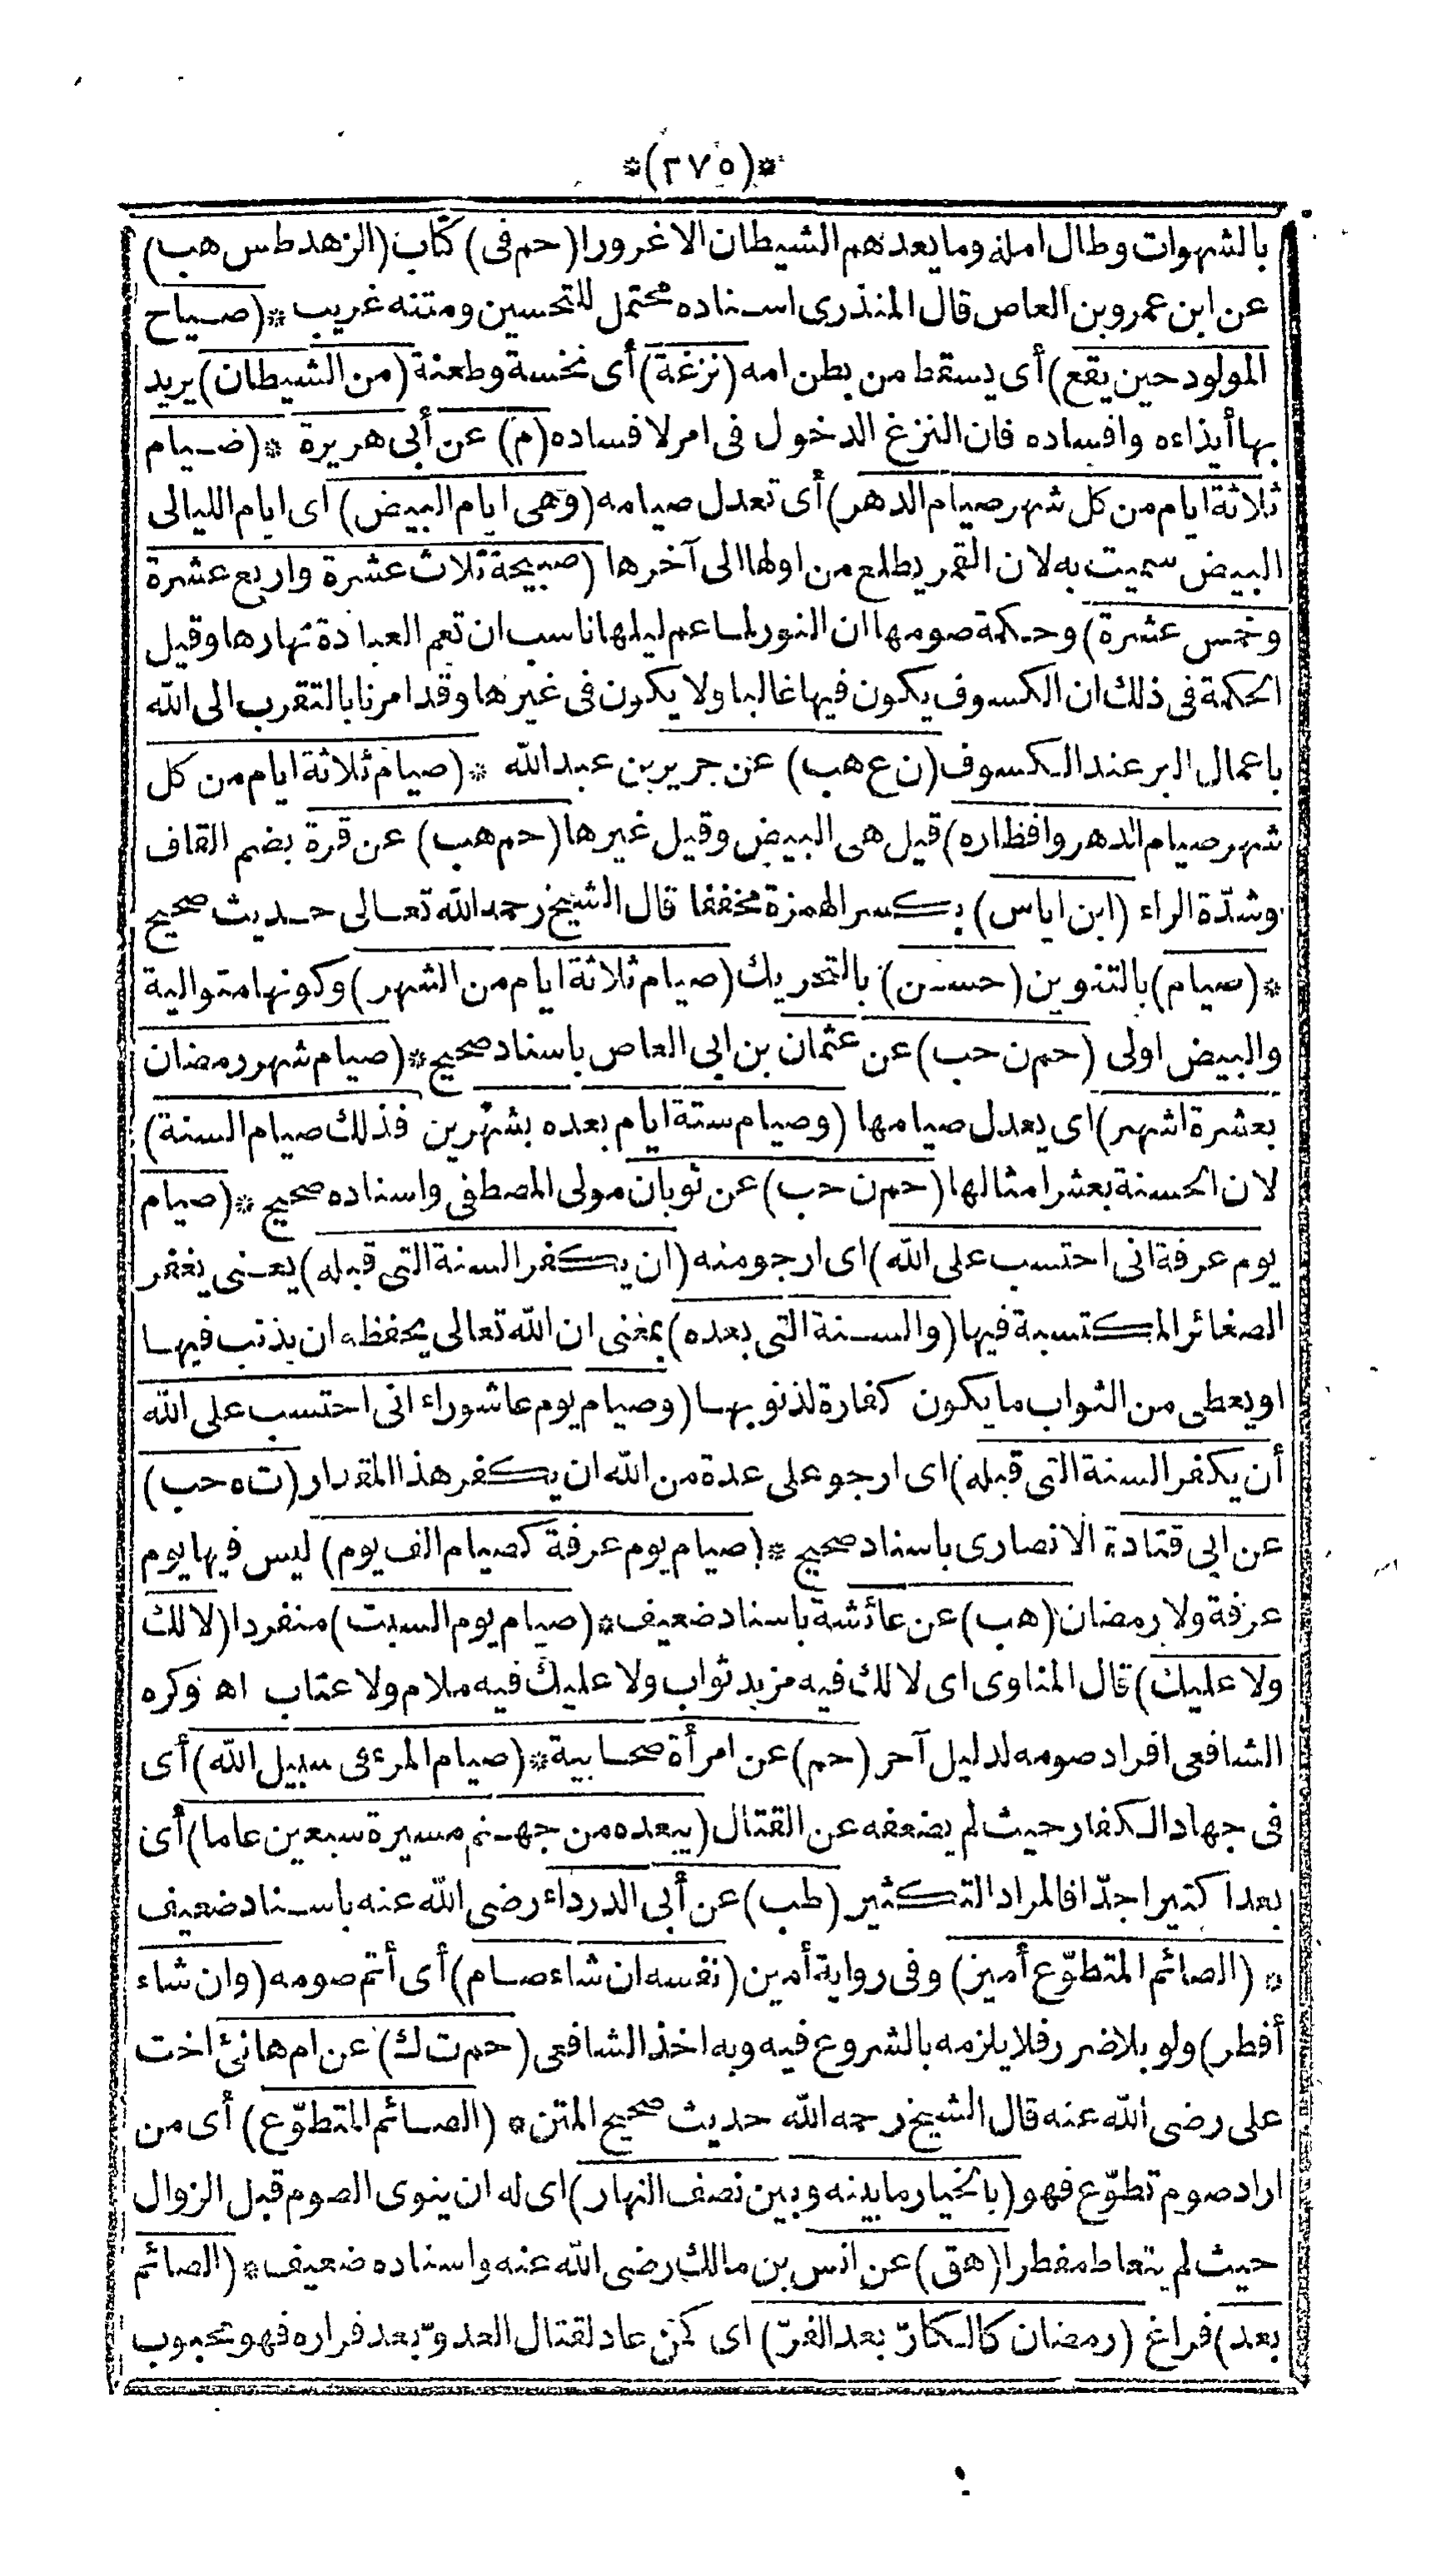 *(٢٧٥)*
بالشهوات وطال امله وما يعدهم الشيطان الاغرورا (حم فى) كتاب (الزهد طس هب)
عن ابن عمرو بن العاص قال المنذرى اسناده محتمل للتحسين ومتنه غريب *(صياح
المولود حين يقع) أى يسقط من بطن امه (نزغة) أى نخسة وطعنة (من الشيطان) يريد
بها أيذاءه وافساده فان النزغ الدخول فى امر لافساده (م) عن أبى هريرة *(صيام
ثلاثة ايام من كل شهر صيام الدهر) أى تعدل صيامه (وهى ايام البيض) اى ايام الليالى
البيض سميت به لان القمر يطلع من اولها الى آخرها (صبيحة ثلاث عشرة واربع عشرة
وخمس عشرة) وحكمة صومها ان النور لما عم ليلها ناسب ان تعم العبادة نهارها وقيل
الحكمة فى ذلك ان الكسوف يكون فيها غالبا ولا يكون فى غيرها وقد امرنا بالتقرب الى الله
باعمال البر عند الكسوف (ن ع هب) عن جرير بن عبد الله *(صيام ثلاثة ايام من كل
شهر صيام الدهر وافطاره) قيل هى البيض وقيل غيرها (حم هب) عن قرة بضم القاف
وشدّة الراء (ابن اياس) بكسر الهمزة مخففا قال الشيخ رحمه الله تعالى حديث صحيح
*(صيام) بالتنوين (حسن) بالتحريك (صيام ثلاثة ايام من الشهر) وكونها متوالية
والبيض اولى (حم ن حب) عن عثمان بن ابى العاص باسناد صحيح *(صيام شهر رمضان
بعشرة اشهر) اى يعدل صيامها (وصيام ستة ايام بعده بشهرين فذلك صيام السنة)
لان الحسنة بعشر امثالها (حم ن حب) عن ثوبان مولى المصطفى واسناده صحيح *(صيام
يوم عرفة انى احتسب على الله) اى ارجو منه (ان يكفر السنة التى قبله) يعنى يغفر
الصغائر المكتسبة فيها (والسنة التى بعده) بمعنى ان الله تعالى يحفظه ان يذنب فيها
او يعطى من الثواب ما يكون كفارة لذنوبها (وصيام يوم عاشوراء انى احتسب على الله
أن يكفر السنة التى قبله) اى ارجو على عدة من الله ان يكفر هذا المقدار (ت ه حب)
عن ابى قتادة الانصارى باسناد صحيح *(صيام يوم عرفة كصيام الف يوم) ليس فيها يوم
عرفة ولا رمضان (هب) عن عائشة باسناد ضعيف *(صيام يوم السبت) منفردا (لا لك
ولا عليك) قال المناوى اى لا لك فيه مزيد ثواب ولا عليك فيه ملام ولا عتاب اه وكره
الشافعى افراد صومه لدليل آخر (حم) عن امرأة صحابية *(صيام المرء فى سبيل الله) أى
فى جهاد الكفار حيث لم يضعفه عن القتال (يبعده من جهنم مسيرة سبعين عاما) أى
بعدا كثيرا جدّا فالمراد التكثير (طب) عن أبى الدرداء رضى الله عنه باسناد ضعيف
* (الصائم المتطوّع أمير) وفى رواية أمين (نفسه ان شاء صام) أى أتم صومه (وان شاء
أفطر) ولو بلا ضرر فلا يلزمه بالشروع فيه وبه اخذ الشافعى (حم ت ك) عن ام هانئ اخت
على رضى الله عنه قال الشيخ رحمه الله حديث صحيح المتن * (الصائم المتطوّع) أى من
اراد صوم تطوّع فهو (بالخيار ما بينه وبين نصف النهار) اى له ان ينوى الصوم قبل الزوال
حيث لم يتعاط مفطرا (هق) عن انس بن مالك رضى الله عنه واسناده ضعيف *(الصائم
بعد) فراغ (رمضان كالكارّ بعد الفرّ) اى كمن عاد لقتال العدوّ بعد فراره فهو محبوب